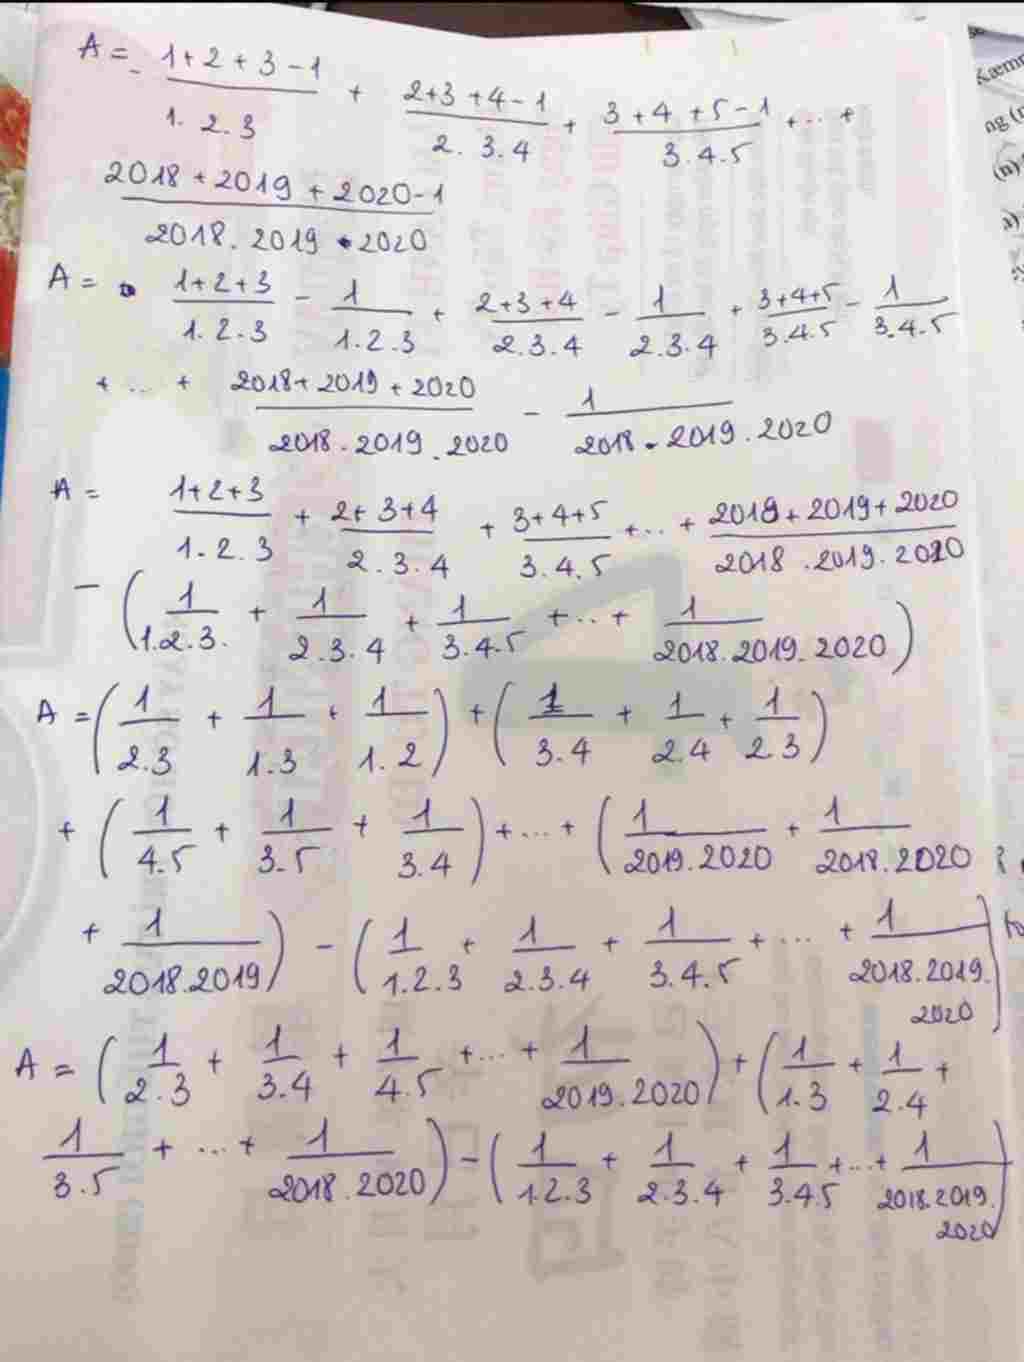 A = (1+2+3-1)/(1.2.3) + (2+3+4-1)/(2.3.4) + (3+4+5-1)/(3.4.5) + ... +
(2018+2019+2020-1)/(2018.2019.2020)
A = (1+2+3)/(1.2.3) - 1/(1.2.3) + (2+3+4)/(2.3.4) - 1/(2.3.4) + (3+4+5)/(3.4.5) - 1/(3.4.5)
+ ... + (2018+2019+2020)/(2018.2019.2020) - 1/(2018.2019.2020)
A = (1+2+3)/(1.2.3) + (2+3+4)/(2.3.4) + (3+4+5)/(3.4.5) + ... + (2018+2019+2020)/(2018.2019.2020)
- (1/(1.2.3.) + 1/(2.3.4) + 1/(3.4.5) + ... + 1/(2018.2019.2020))
A = (1/(2.3) + 1/(1.3) + 1/(1.2)) + (1/(3.4) + 1/(2.4) + 1/(2.3))
+ (1/(4.5) + 1/(3.5) + 1/(3.4)) + ... + (1/(2019.2020) + 1/(2018.2020)
+ 1/(2018.2019)) - (1/(1.2.3) + 1/(2.3.4) + 1/(3.4.5) + ... + 1/(2018.2019.2020))
A = (1/(2.3) + 1/(3.4) + 1/(4.5) + ... + 1/(2019.2020)) + (1/(1.3) + 1/(2.4) +
1/(3.5) + ... + 1/(2018.2020)) - (1/(1.2.3) + 1/(2.3.4) + 1/(3.4.5) + ... + 1/(2018.2019.2020))